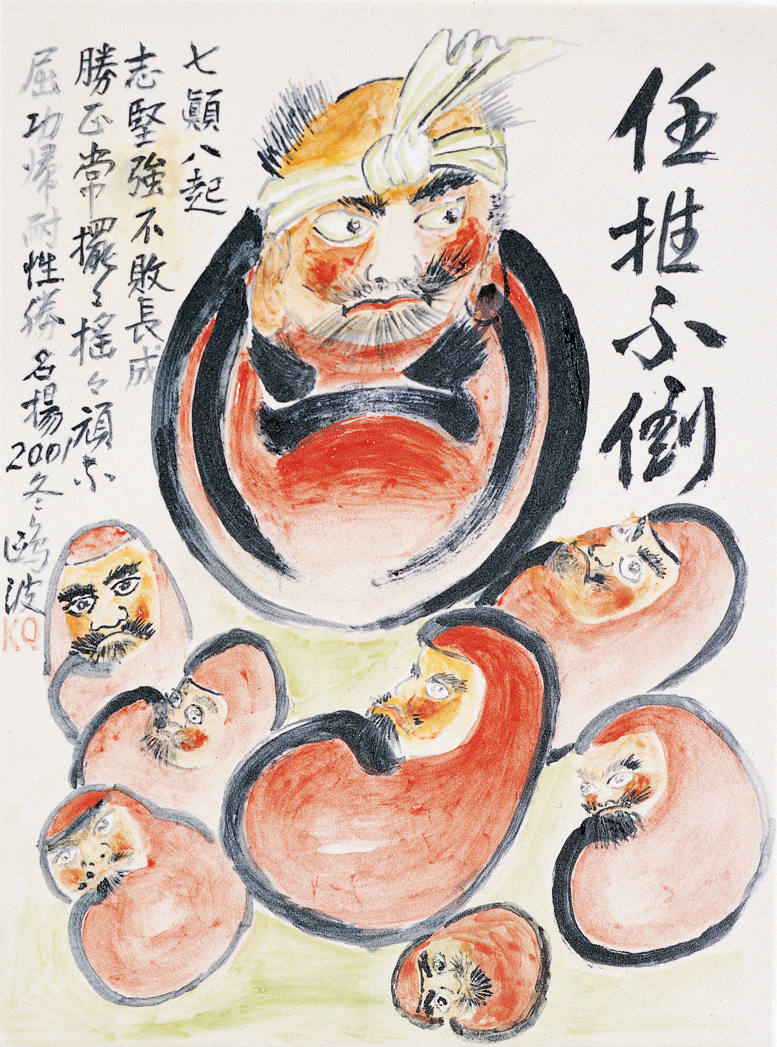 任推不倒
七顛八起
志堅強不敗長成
勝正常擺々搖々頑不
屈功歸耐性勝名揚
2001冬鷗波
KO